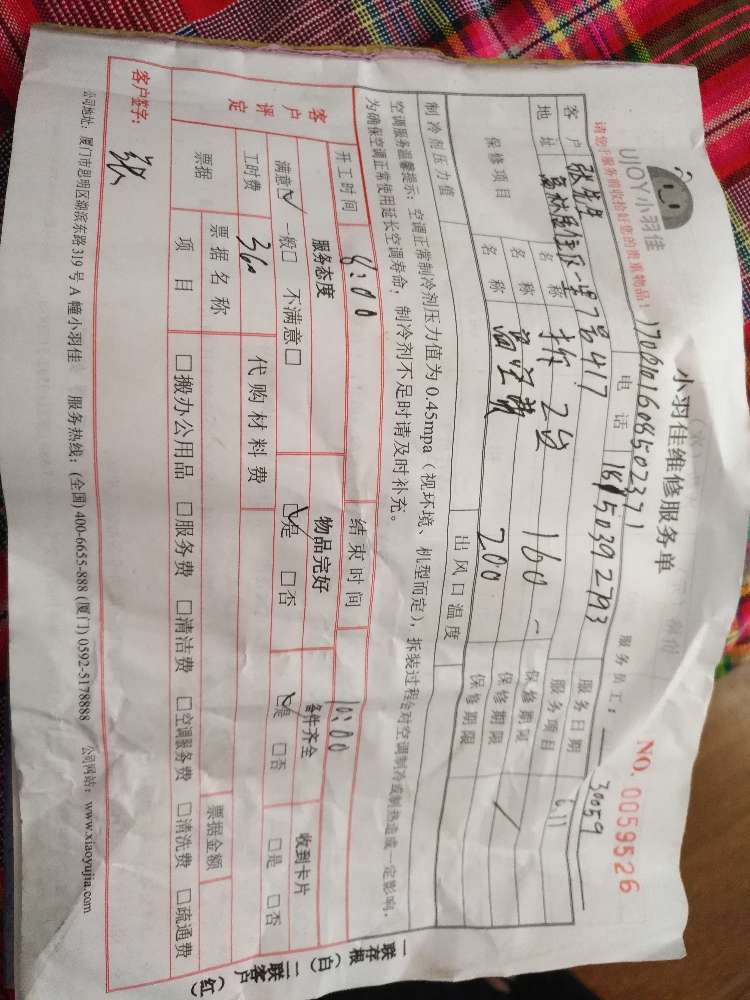 UJOY小羽佳
小羽佳维修服务单
NO. 0059526
请您在服务前收拾好您的贵重物品！
服务员工： 30059
客户 张先生 电话 服务日期 6.11
地址 7号417 服务项目
保修项目 名称 拆2台 160 保修期限
名称 高空费 200 保修期限
名称 保修期限
制冷剂压力值 出风口温度
空调服务温馨提示：空调正常制冷剂压力值为0.45mpa（视环境、机型而定），拆装过程会对空调制冷或制热造成一定影响，
为确保空调正常使用延长空调寿命，制冷剂不足时请及时补充。
开工时间 8:00 结束时间 10:00
客户评定 服务态度 物品完好 备件齐全 收到卡片
满意□ 一般□ 不满意□ □是 □否 □是 □否 □是 □否
工时费 360 代购材料费
票据 票据名称 票据金额
项目 □搬办公用品 □服务费 □清洁费 □空调服务费 □清洗费 □疏通费
客户签字： 张
公司地址：厦门市思明区湖滨东路319号A幢小羽佳 服务热线：(全国) 400-6655-888 (厦门) 0592-5178888 公司网站：www.xiaoyujia.com
一联存根（白） 二联客户（红）